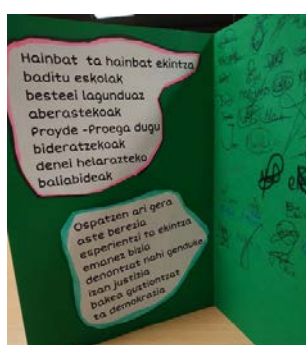 Hainbat ta hainbat ekintza
baditu eskolak
besteei lagunduaz
aberastekoak
Proyde -Proega dugu
bideratzekoak
denei helarazteko
baliabideak
Ospatzen ari gera
aste berezia
esperientzi ta ekintza
emanez bizia
denontzat nahi genduke
izan justizia
bakea guztiontzat
ta demokrazia